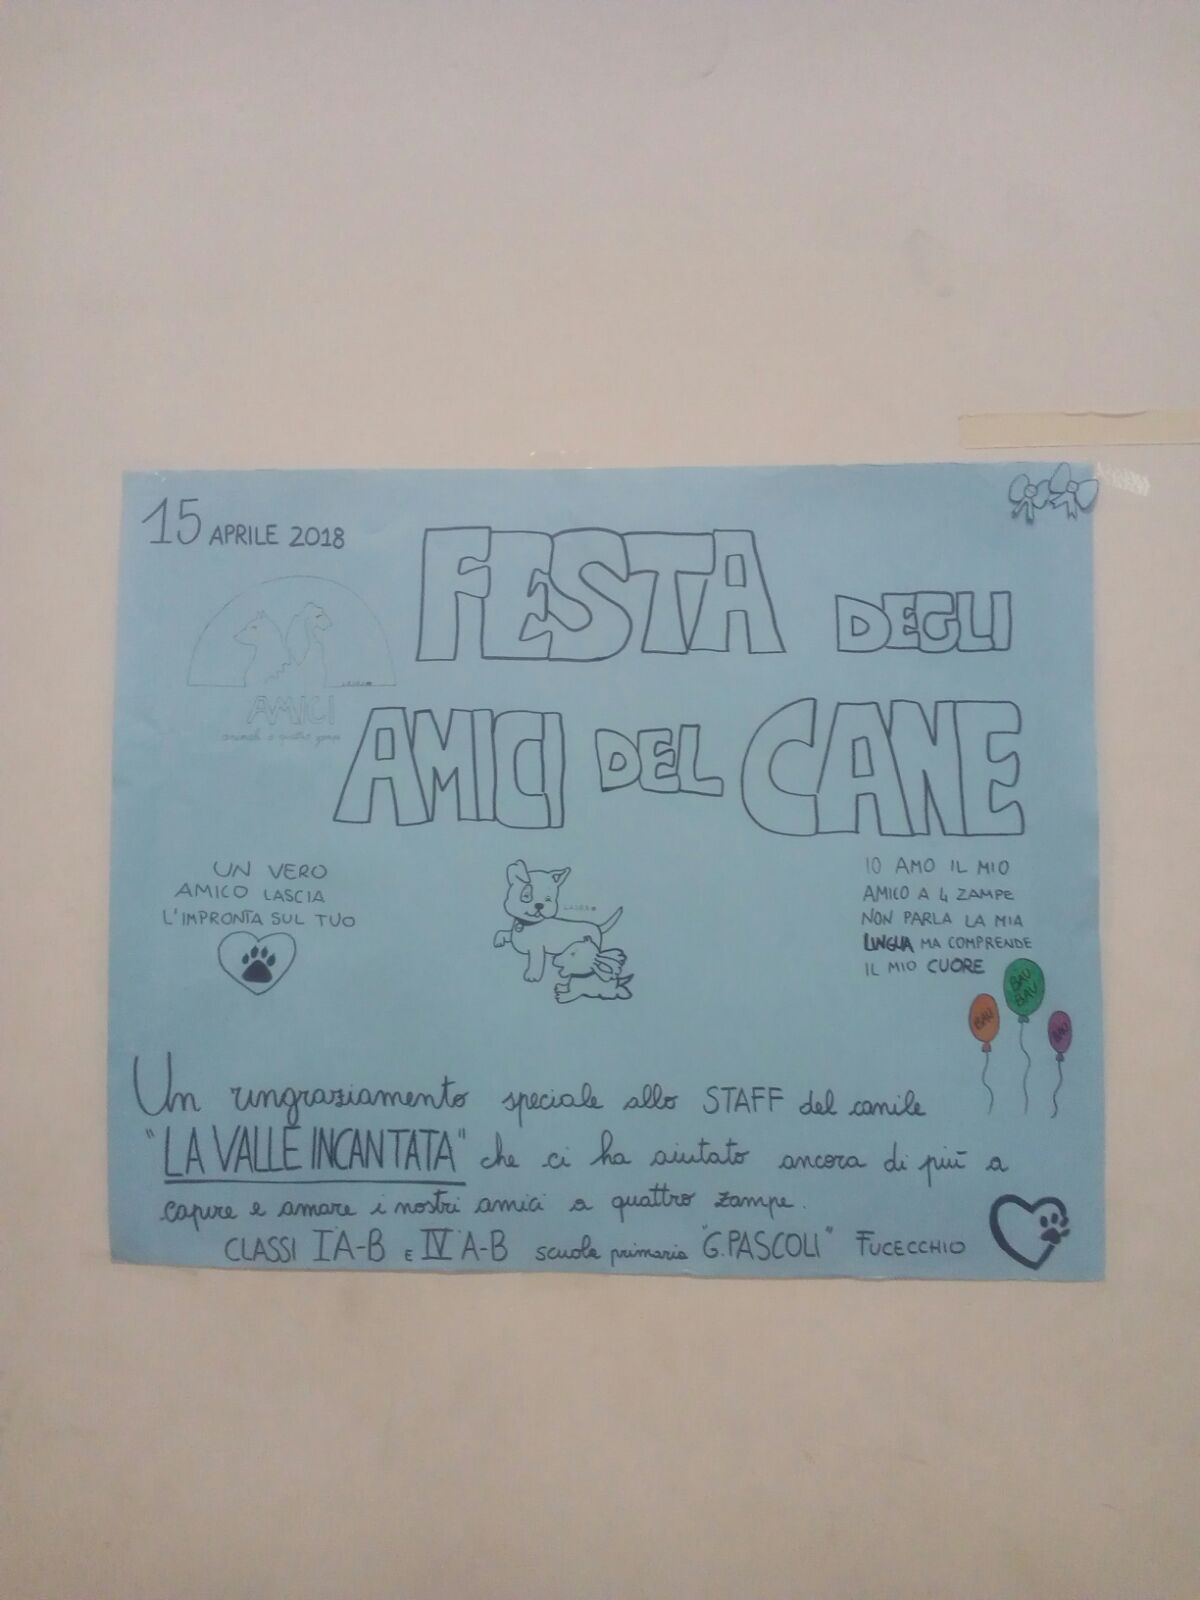 15 APRILE 2018
FESTA DEGLI
AMICI DEL CANE
AMICI
animali a quattro zampe
UN VERO
AMICO LASCIA
L'IMPRONTA SUL TUO
IO AMO IL MIO
AMICO A 4 ZAMPE
NON PARLA LA MIA
LINGUA MA COMPRENDE
IL MIO CUORE
BAU
BAU
BAU
BAU
Un ringraziamento speciale allo STAFF del canile
"LA VALLE INCANTATA" che ci ha aiutato ancora di più a
capire e amare i nostri amici a quattro zampe.
CLASSI I A-B E IV A-B scuola primaria "G. PASCOLI" FUCECCHIO